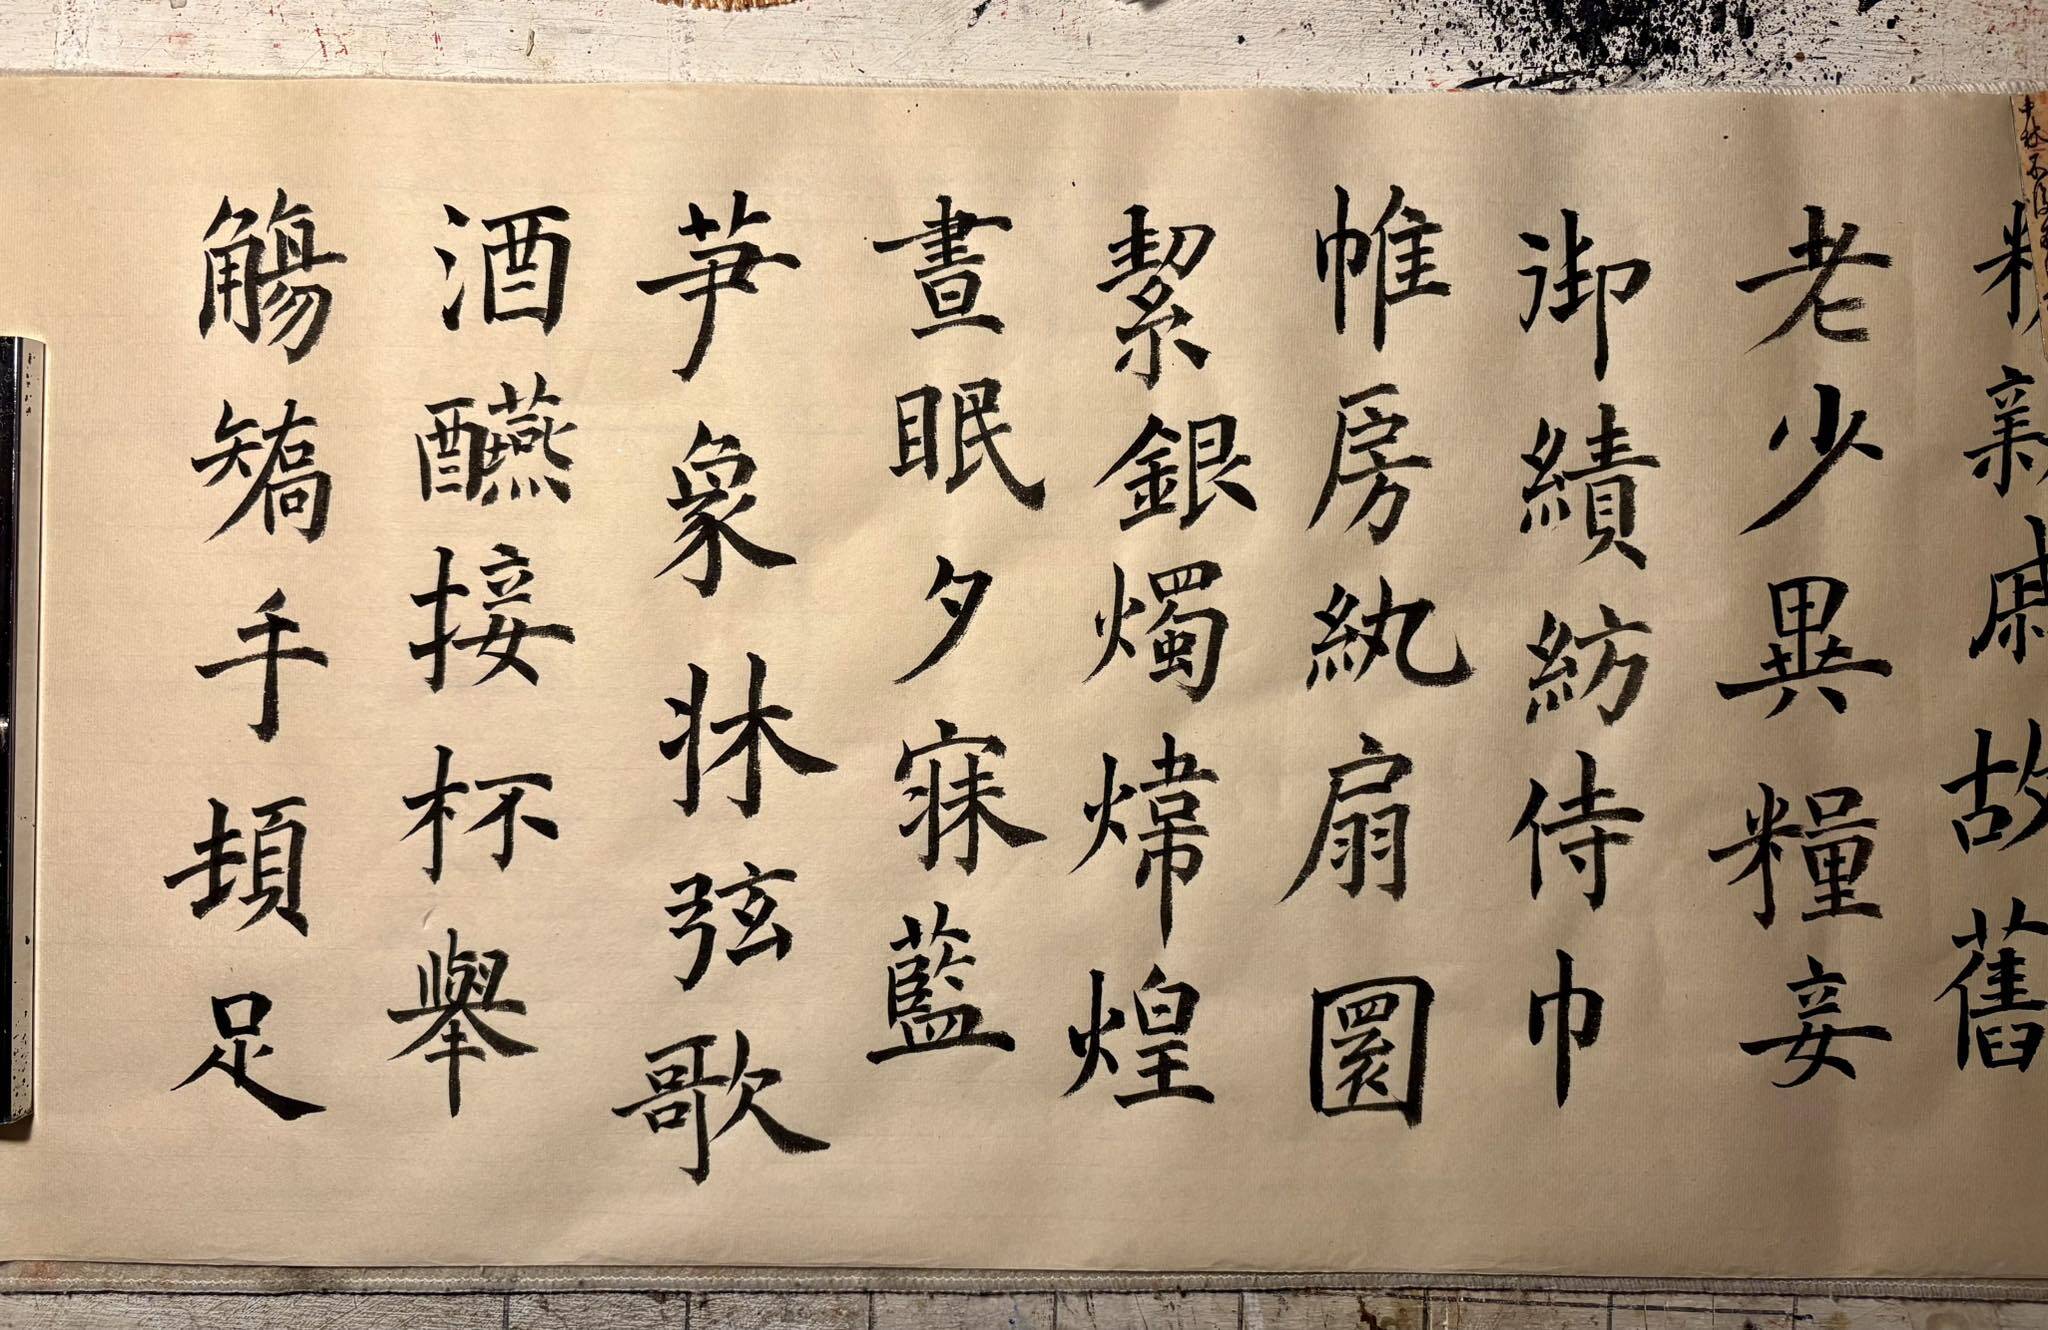 親戚故舊
老少異糧妾
御績紡侍巾
帷房紈扇圜
絜銀燭煒煌
晝眠夕寐藍
芛象牀弦歌
酒醼接杯舉
觴矯手頓足